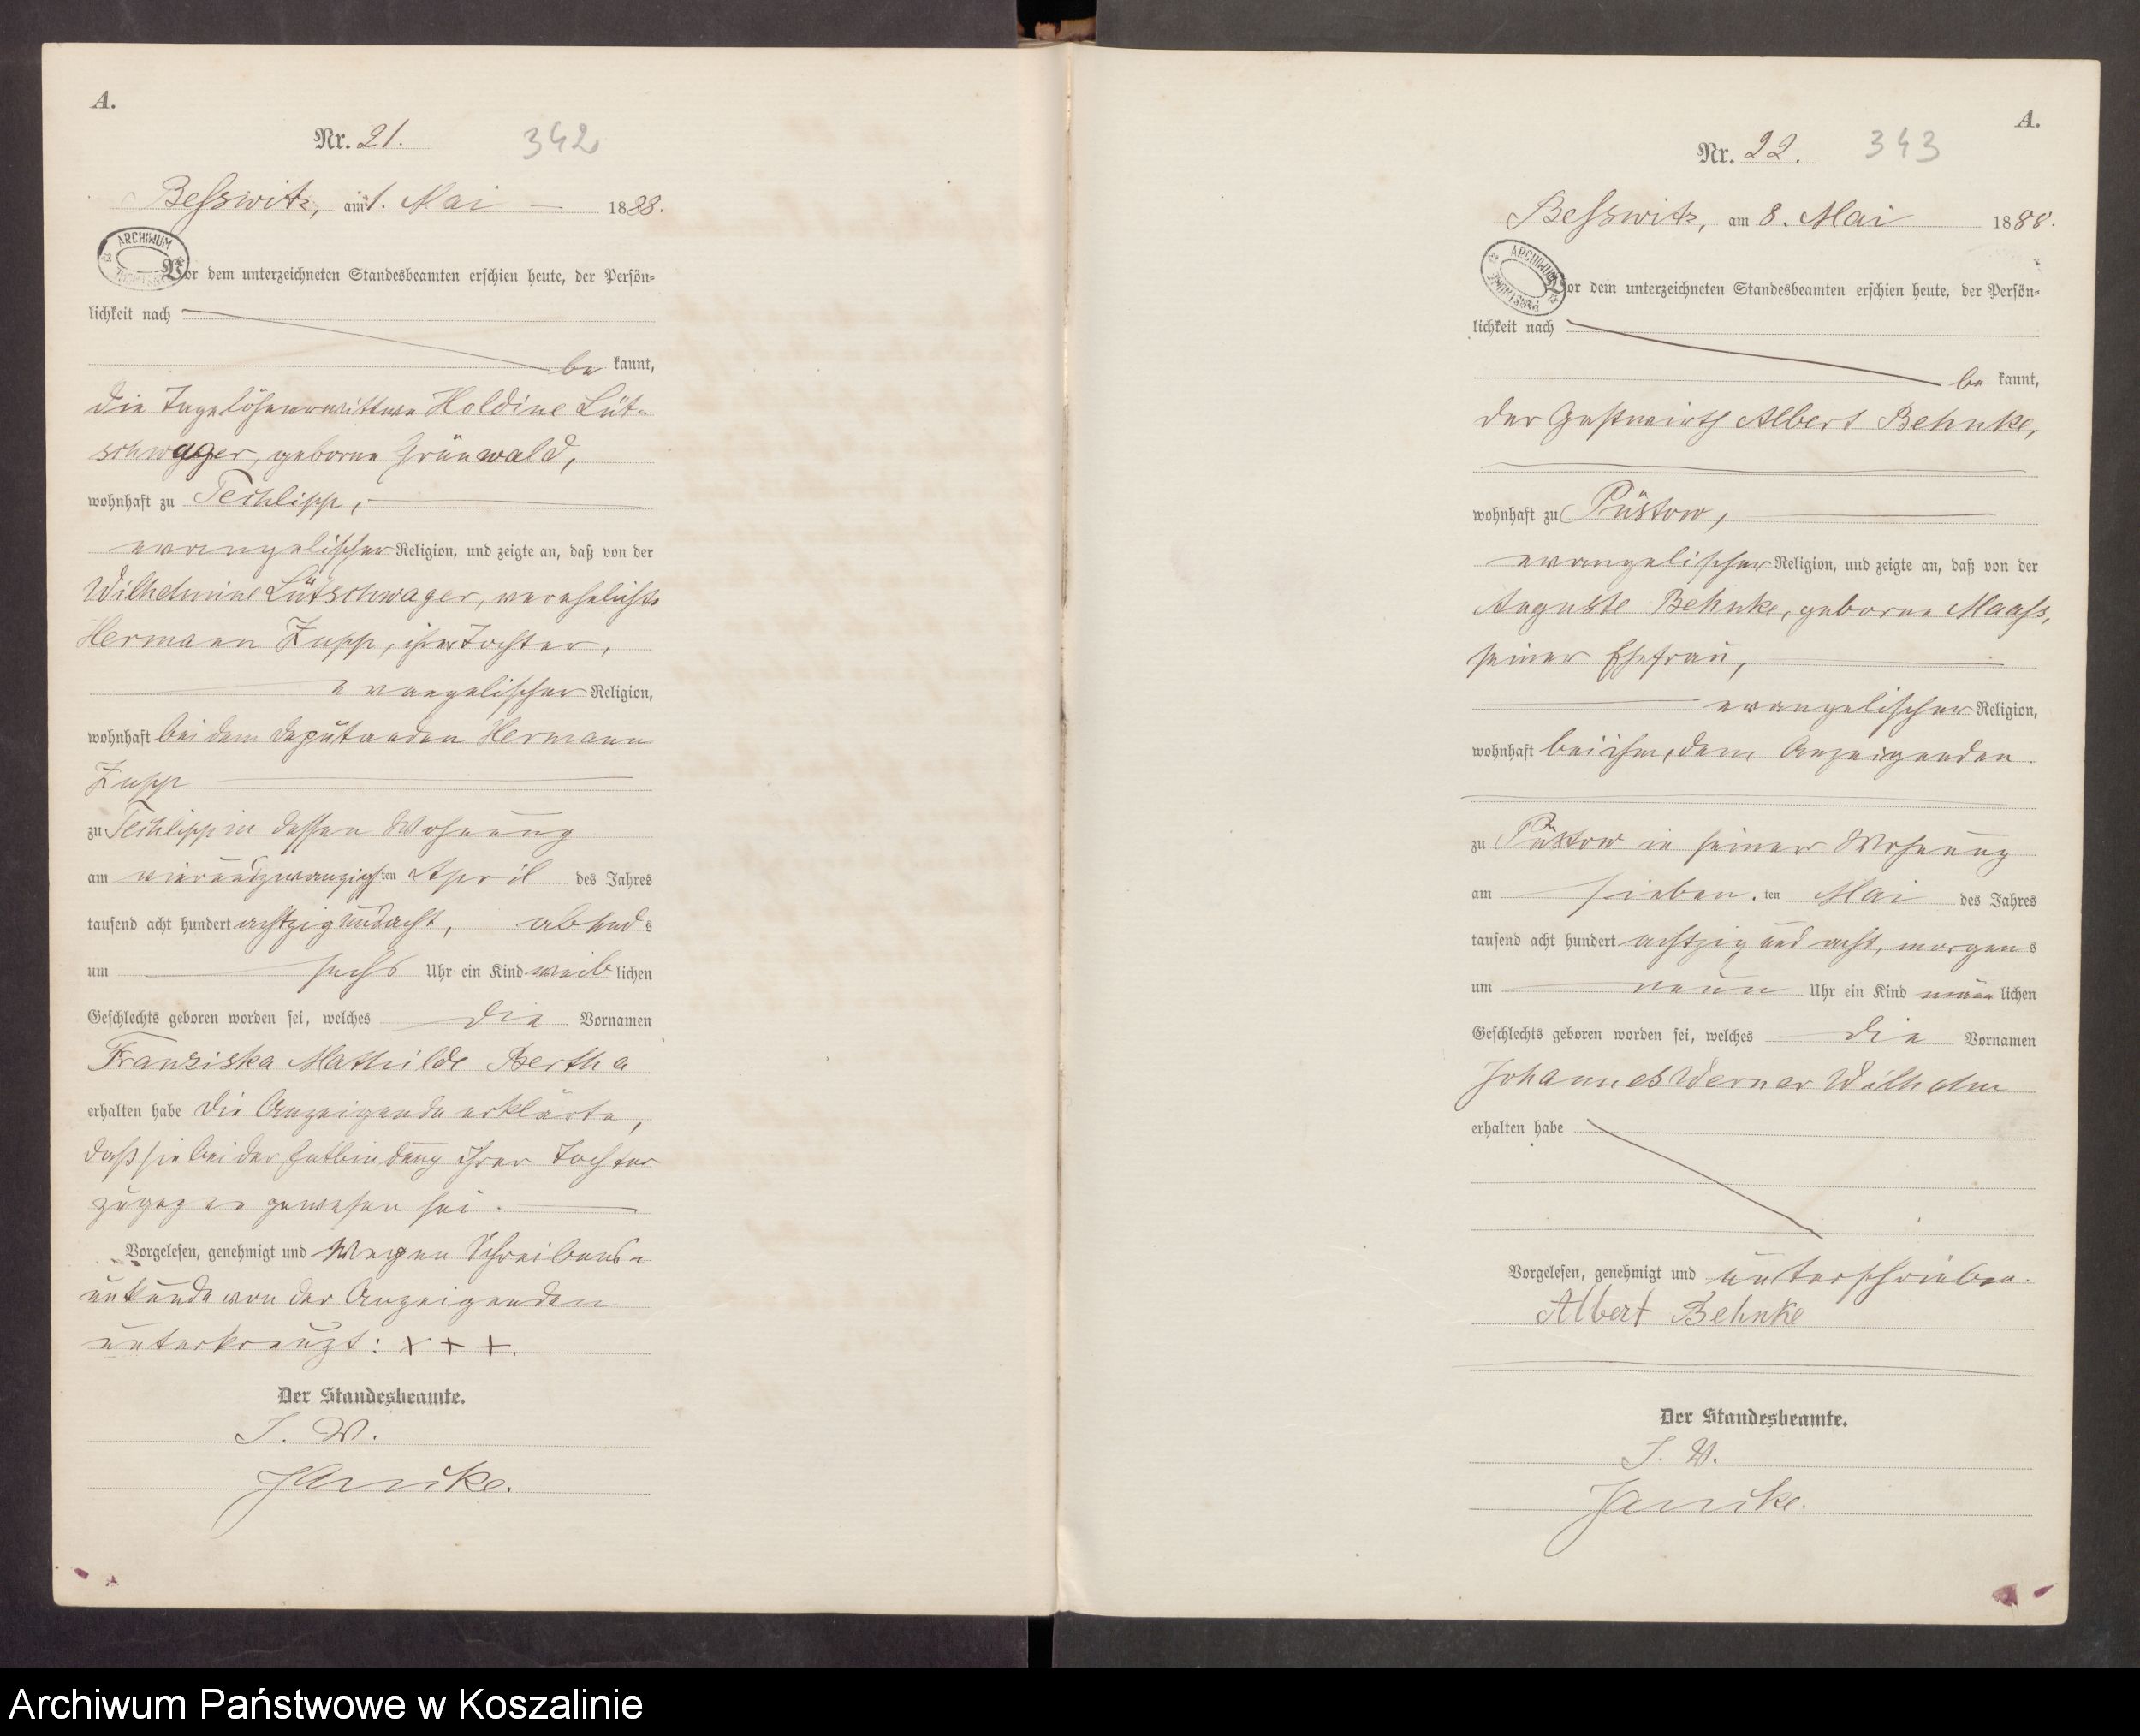 A.
Nr. 21.
342
Besswitz, am 1. Mai 1888.
ARCHIWUM
Vor dem unterzeichneten Standesbeamten erschien heute, der Persön=
lichkeit nach
be kannt,
die Tagelöhnerwittwe Holdine Lüt-
schwager, geborne Grünwald,
wohnhaft zu Techlipp,
evangelischer Religion, und zeigte an, daß von der
Wilhelmine Lütschwager, verehelichte
Hermann Zupp, ihrer Tochter,
evangelischer Religion,
wohnhaft bei dem Deputanden Hermann
Zupp
zu Techlipp in dessen Wohnung
am vierundzwanzigsten April des Jahres
tausend acht hundert achtzig und acht, abends
um sechs Uhr ein Kind weiblichen
Geschlechts geboren worden sei, welches die Vornamen
Franziska Mathilde Bertha
erhalten habe die Anzeigende erklärte,
daß sie bei der Entbindung ihrer Tochter
zugegen gewesen sei.
Vorgelesen, genehmigt und Wegen Schreibens-
unkunde von der Anzeigenden
unterkreuzt: x + +.
Der Standesbeamte.
J. V.
Janike.
A.
Nr. 22.
343
Besswitz, am 8. Mai 1888.
ARCHIWUM
Vor dem unterzeichneten Standesbeamten erschien heute, der Persön=
lichkeit nach
be kannt,
der Gastwirth Albert Behnke,
wohnhaft zu Püstow,
evangelischer Religion, und zeigte an, daß von der
Auguste Behnke, geborne Maass,
seiner Ehefrau,
evangelischer Religion,
wohnhaft bei ihm, dem Anzeigenden.
zu Püstow in seiner Wohnung
am sieben.ten Mai des Jahres
tausend acht hundert achtzig und acht, morgens
um neun Uhr ein Kind männlichen
Geschlechts geboren worden sei, welches die Vornamen
Johannes Werner Wilhelm
erhalten habe
Vorgelesen, genehmigt und unterschrieben.
Albert Behnke
Der Standesbeamte.
J. V.
Janike.
Archiwum Państwowe w Koszalinie